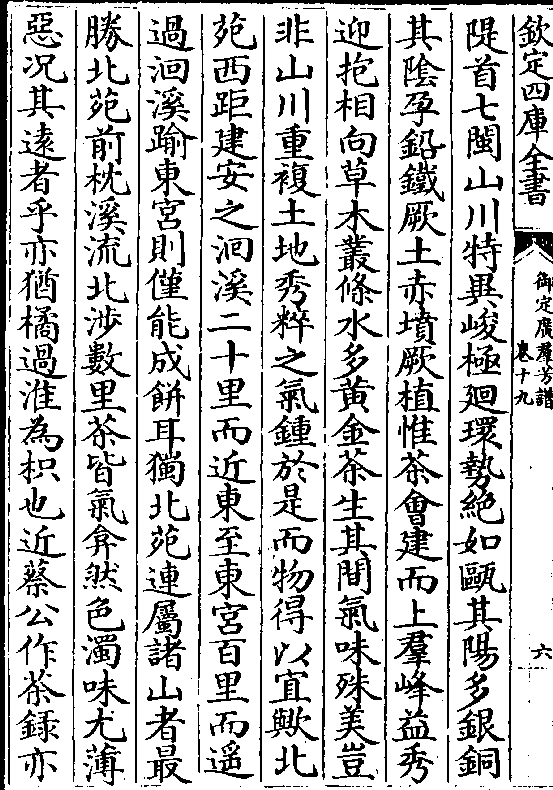 欽定四庫全書
御定廣羣芳譜
卷十九
六
隄首七閩山川特異峻極廻環勢絶如甌其陽多銀銅
其陰孕鉛鐵厥土赤墳厥植惟茶會建而上羣峰益秀
迎抱相向草木叢條水多黄金茶生其間氣味殊美豈
非山川重複土地秀粹之氣鍾於是而物得以宜歟北
苑西距建安之洄溪二十里而近東至東宮百里而遥
過洄溪踰東宮則僅能成餅耳獨北苑連屬諸山者最
勝北苑前枕溪流北涉數里茶皆氣弇然色濁味尤薄
惡况其遠者乎亦猶橘過淮為枳也近蔡公作茶錄亦